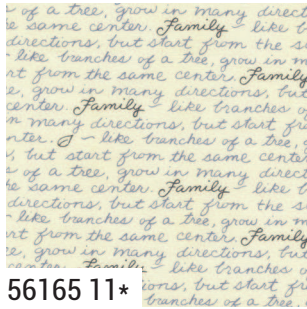 of a tree, grow in many direct
e same center. Family - like b
directions, but start from the s
- like branches of a tree, grow in m
rt from the same center. Family
e, grow in many directions, bu
center. Family - like branches o
n many directions, but start fr
nter. - like branches of a tree,
, but start from the same cente
s of a tree, grow in many direct
he same center. Family - like b
directions, but start from the s
- like branches of a tree, grow in m
rt from the same center. Family
ee, grow in many directions, but
center. Family - like branches o
56165 11* ions, but start fr
branches of a tree.